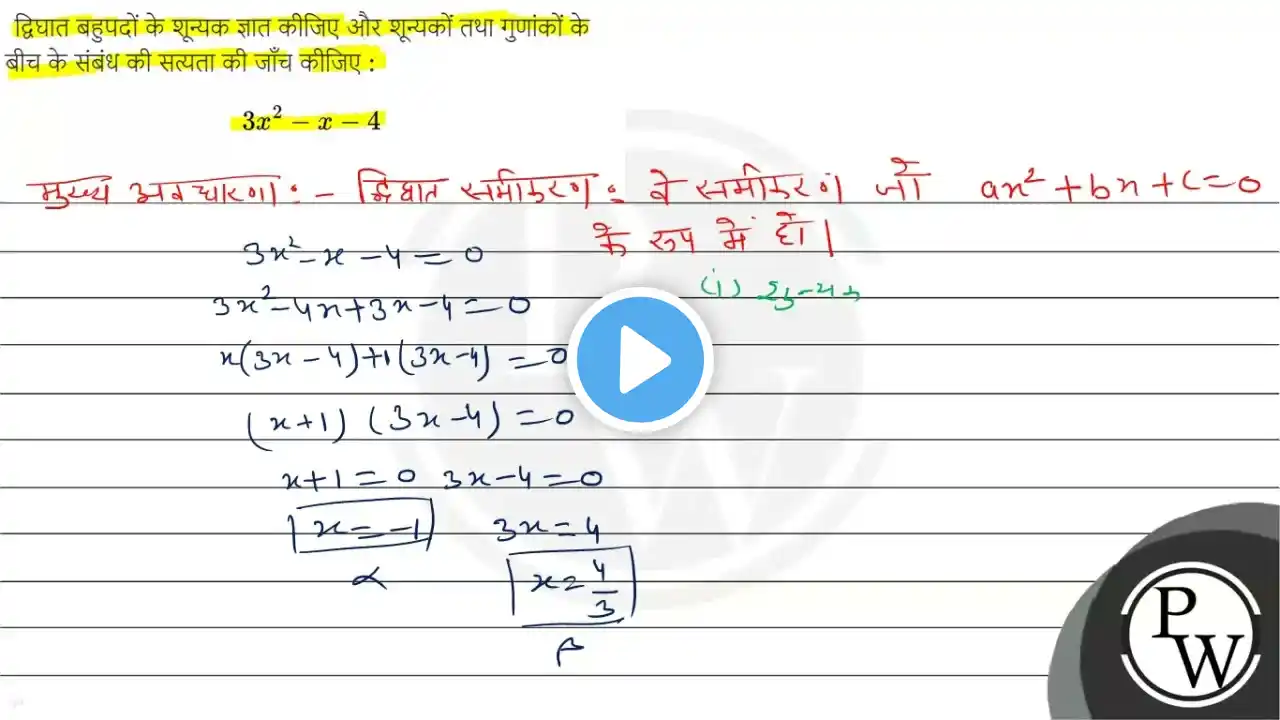 द्विघात बहुपदों के शून्यक ज्ञात कीजिए और शून्यकों तथा गुणांकों के
बीच के संबंध की सत्यता की जाँच कीजिए :
3x² − x − 4
मुख्य अवधारणा : - द्विघात समीकरण : वे समीकरण जो ax² + bx + c = 0
के रूप में हो।
3x² - x - 4 = 0
(i)
3x² - 4x + 3x - 4 = 0
x(3x - 4) + 1(3x - 4) = 0
(x + 1) (3x - 4) = 0
x + 1 = 0 3x - 4 = 0
x = -1 3x = 4
α x = 4/3
β
PW